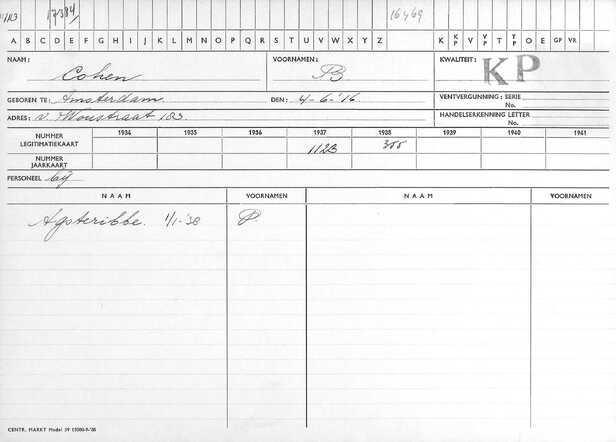 1123 17384 16469
A B C D E F G H I J K L M N O P Q R S T U V W X Y Z K KP V VP T TP O E GP VR
NAAM: Cohen VOORNAMEN: B KWALITEIT: KP
GEBOREN TE: Amsterdam DEN: 4-6-'16 VENTVERGUNNING: SERIE
No.
ADRES: v. Woustraat 183 HANDELSERKENNING LETTER
No.
NUMMER LEGITIMATIEKAART 1934 1935 1936 1937 1938 1939 1940 1941
1123 355
NUMMER JAARKAART
PERSONEEL bij
NAAM VOORNAMEN NAAM VOORNAMEN
Agsteribbe. 1/1-'38 P.
CENTR. MARKT Model 39 15000-9-'38